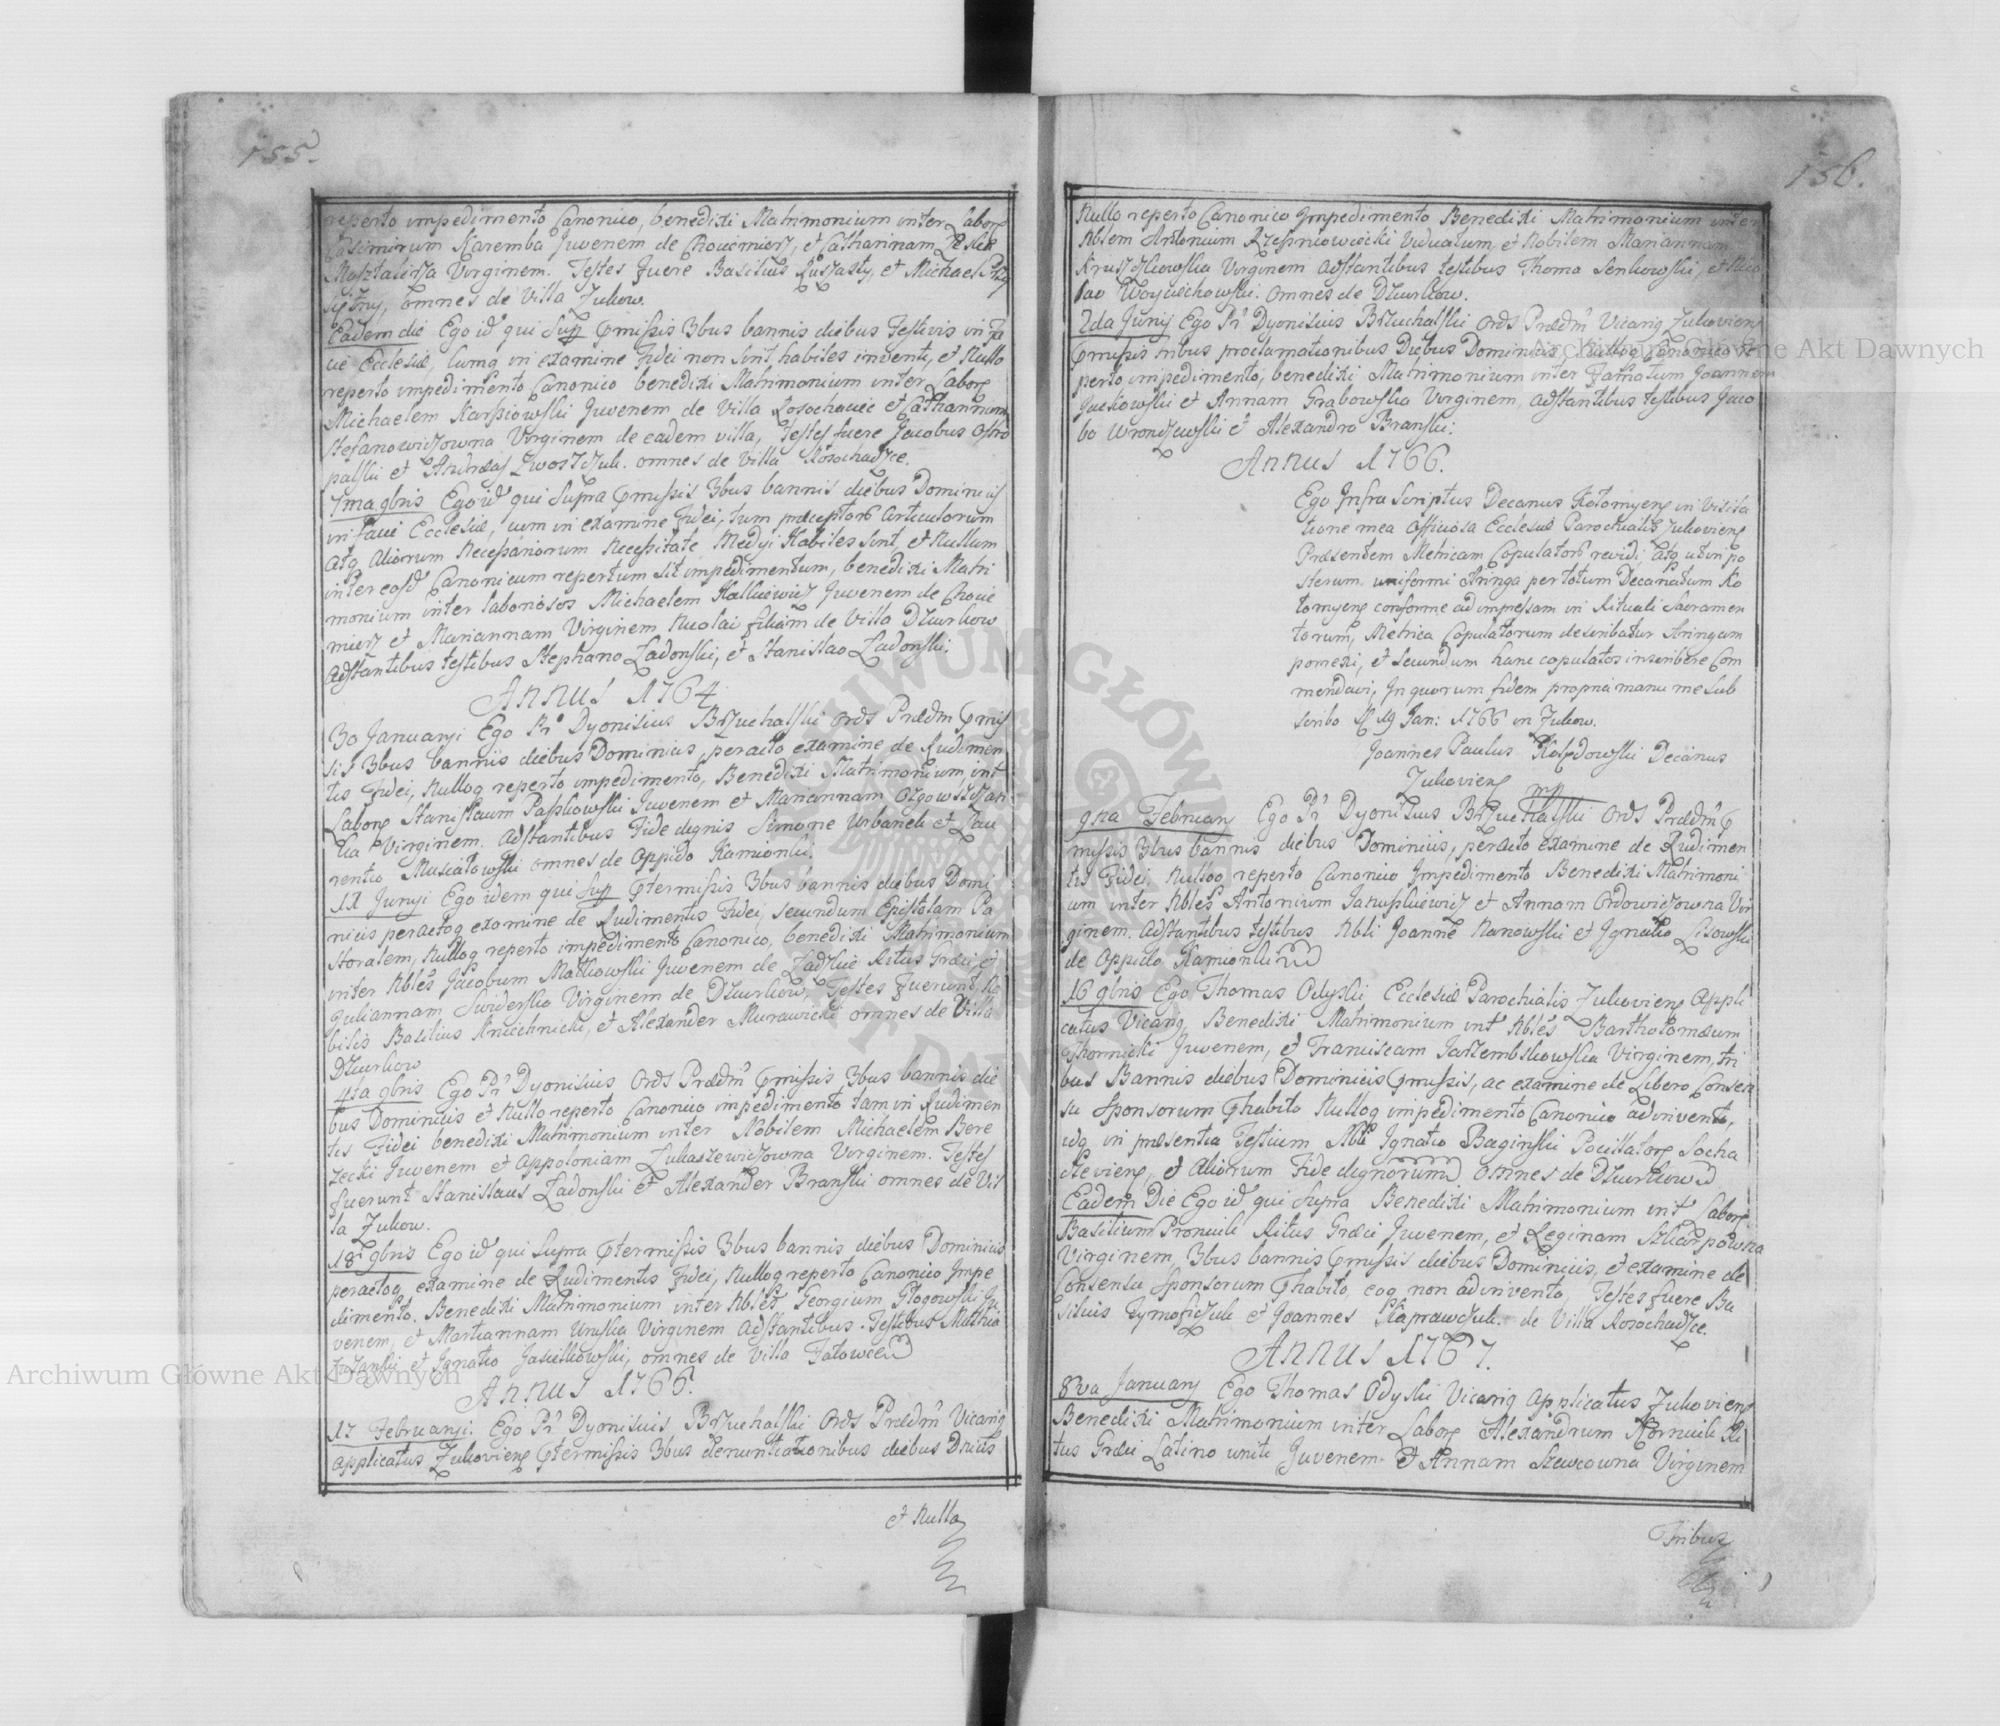 155.
reperto impedimento Canonico, benedixi Matrimonium inter Labors
Casimirum Karemba Juvenem de Chocimierz, et Catharinam
Virginem. Testes fuere Basilius et Michael
omnes de Villa Zukow.
Eadem die Ego id qui Supp pmissis 3bus bannis diebus Festivis in Fa
cie Ecclesiæ, cumq in examine Fidei non sint habiles inventi, et Nullo
reperto impedimento Canonico benedixi Matrimonium inter Labors
Michaelem Karpiowski Juvenem de Villa Rosochacie et Catharinam
Stefanowiczowna Virginem de eadem villa, Testes fuere Jacobus Ostro
palski et Andreas omnes de Villa Rosochadze.
7ma 9bris Ego id qui Supra pmissis 3bus bannis diebus Dominicis
in facie Ecclesiæ, cum in examine Fidei, tum præceptor Articulorum
atq Aliorum Necessariorum Necessitate Medyi Habiles sint, et Nullum
inter eosd Canonicum repertum sit impedimentum, benedixi Matri
monium inter laboriosos Michaelem Juvenem de Choci
mierz et Mariannam Virginem Nicolai filiam de Villa Dzurkow
Adstantibus testibus Stephano Zadonski, et Stanislao Zadonski.
Annus 1764.
30 Januaryi Ego Pr Dyonisius Brzuchalski Ords Prædm pmis
sis 3bus banniis diebus Dominicis, peracto examine de Rudimen
tis Fidei, Nulloq reperto impedimento, Benedixi Matrimonium, int
Labors Stanislaum Paskowski Juvenem et Mariannam
ka Virginem. Adstantibus Fide dignis Simone Urbanek et Lau
rentio omnes de Oppido Kamionki.
Junyi Ego idem qui Supp ptermissis 3bus bannis diebus Domi
nicis peractoq examine de Rudimentis Fidei, secundum Epistolam Pa
storalem, Nulloq reperto impedimento Canonico, benedixi Matrimonium
inter Nbles Jacobum Matkowski Juvenem de Ritus Græci, et
Juliannam Swiderska Virginem de Dzurkow, Testes Fuerunt, No
bilis Basilius Kniehnicki, et Alexander Murawicki omnes de Villa
Dzurkow
4ta 9bris Ego Pr Dyonisius Ords Prædm pmissis 3bus bannis die
bus Dominicis et Nullo reperto Canonico impedimento tam in Rudimen
tis Fidei benedixi Matrimonium inter Nobilem Michaelem Bere
zecki Juvenem et Appoloniam Lukaszewiczowna Virginem. Testes
fuerunt Stanislaus Zadonski et Alexander Branski omnes de Vil
la Zukow.
18 9bris Ego id qui Supra ptermissis 3bus bannis diebus Dominicis
peractoq examine de Rudimentis Fidei, Nulloq reperto Canonico Impe
dimento. Benedixi Matrimonium inter Nbles Georgium Głogowski Ju
venem, et Mariannam Virginem Adstantibus Testibus Mathia
et Ignatio omnes de Villa
Annus 1765.
17 Februaryi. Ego Pr Dyonisius Brzuchalski Ords Prædm Vicariq
Applicatus Zukoviens ptermissis 3bus denuntiationibus diebus Dnicis
et Nullo
156.
Nullo reperto Canonico Impedimento Benedixi Matrimonium inter
Nblem Antonium Viduatum, et Nobilem Mariannam
Virginem Adstantibus testibus Thoma Senkowski, et Nico
lao Woyciechowski. omnes de Dzurkow.
2da Junij Ego Pr Dyonisius Brzuchalski Ords Prædm Vicariq Zukoviens
pmissis tribus proclamationibus Diebus Dominicis Nulloq Canonico re
perto impedimento, benedixi Matrimonium inter Famatum Joannem
et Annam Grabowska Virginem, Adstantibus testibus Jaco
bo Wronczewski et Alexandro Branski.
Annus 1766.
Ego Infra Scriptus Decanus Kolomyens in Visita
tione mea Officiosa Ecclesiæ Parochialis Zukoviens
Præsentem Metricam Copulator revidi, atq ut in po
sterum uniformi Aringa per totum Decanatum Ko
lomyens conforme ad impressam in Rituali Sacramen
torum, Metrica Copulatorum describatur Aringam
pomexi, et secundum hanc copulatos inscribere Com
mendavi, In quorum fidem propria manu me Sub
scribo 19 Jan: 1766 in Zukow.
Joannes Paulus Decanus
Zukoviens mp
9na Februarij Ego Pr Dyonisius Brzuchalski Ords Prædm p
missis 3bus bannis diebus Dominicis, peracto examine de Rudimen
tis Fidei Nulloq reperto Canonico Impedimento Benedixi Matrimoni
um inter Nbles Antonium Januszkiewicz et Annam Ordowiczowna Vir
ginem. Adstantibus testibus Nbli Joanne Nanowski et Ignatio Lisowski
de Oppido Kamionki
16 9bris Ego Thomas Odyski Ecclesiæ Parochialis Zukoviens Appli
catus Vicariq Benedixi Matrimonium int Nbles Bartholomæum
Thornicki Juvenem, et Franciscam Jarzembkowska Virginem, tri
bus Bannis diebus Dominicis pmissis, ac examine de Libero Consen
su Sponsorum phabito Nulloq impedimento Canonico adinvento,
idq in præsentia Testium Nbli Ignatio Baginski Pocillatore Socha
cseviens, et Aliorum Fide dignorum omnes de Dzurkow
Eadem Die Ego id qui Supra Benedixi Matrimonium int Labors
Basilium Ritus Græci Juvenem, et Reginam Szkarpowna
Virginem, 3bus bannis pmissis diebus Dominicis, et examine de
Consensu Sponsorum phabito, eoq non adinvento, Testes fuere Ba
silius Tymoficzuk et Joannes Kaprawczuk. de Villa Rosochadze.
Annus 1767.
8va January Ego Thomas Odyski Vicariq Applicatus Zukoviens
Benedixi Matrimonium inter Labors Alexandrum Ri
tus Græci Latino uniti Juvenem et Annam Szewcowna Virginem
Tribus
Archiwum Główne Akt Dawnych
Archiwum Główne Akt Dawnych
ARCHIWUM GŁÓWNE AKT DAWNYCH